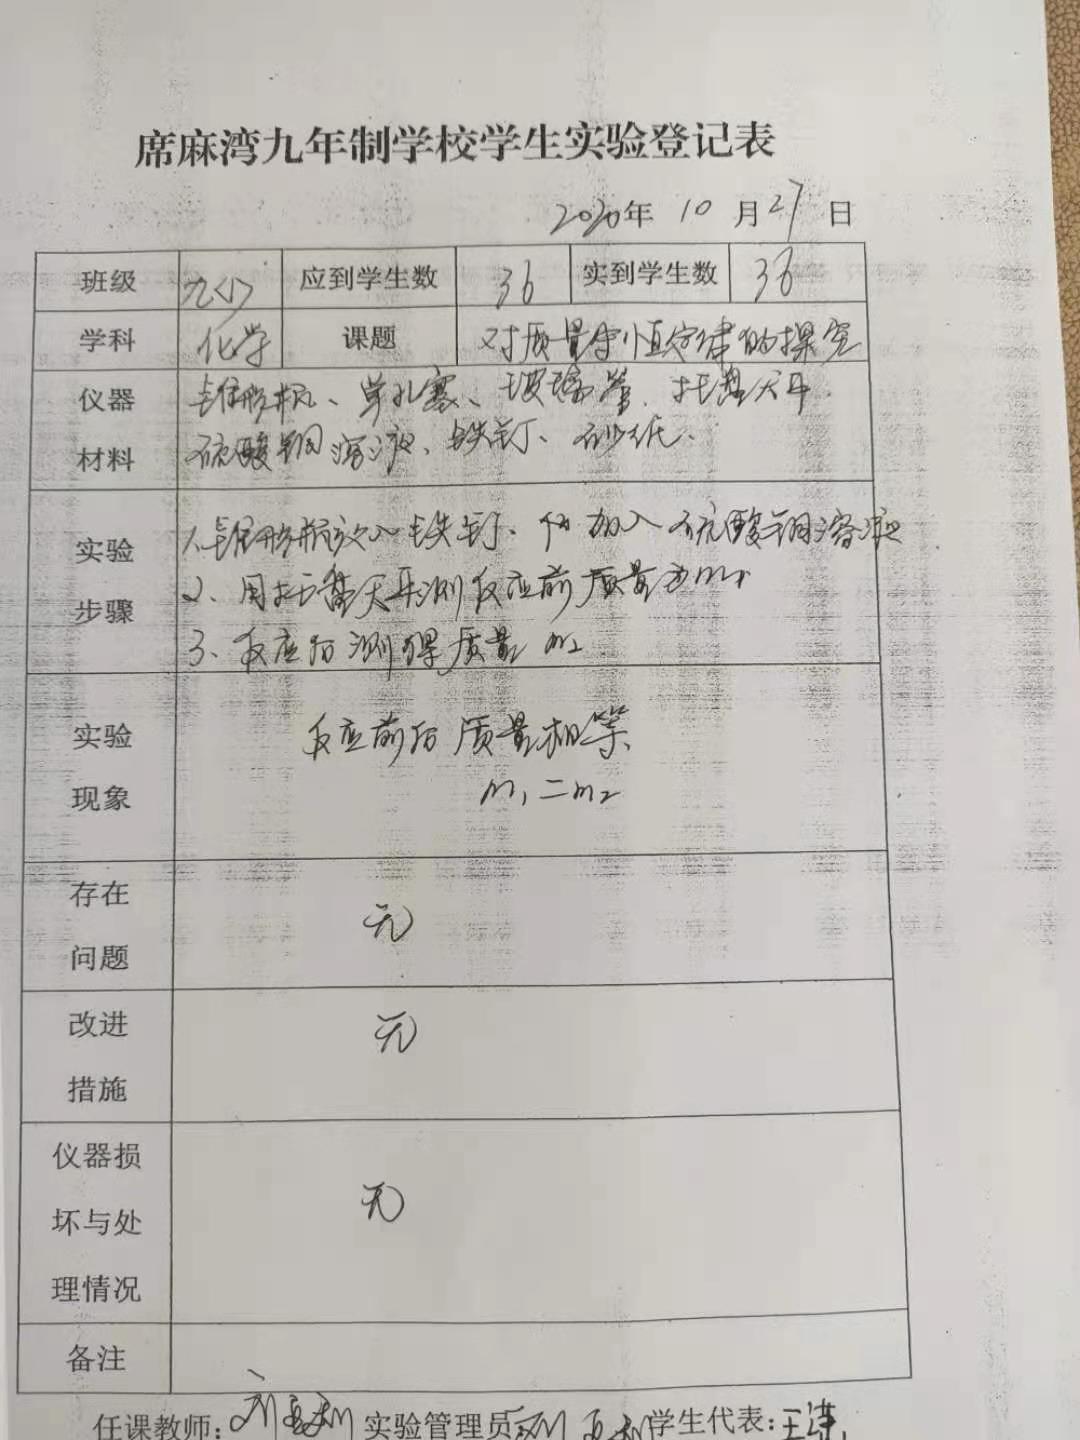 席麻湾九年制学校学生实验登记表
2020年 10 月 27 日
班级 九(1) 应到学生数 36 实到学生数 36
学科 化学 课题 对质量守恒定律的探究
仪器 锥形瓶、单孔塞、玻璃管、托盘天平、
材料 硫酸铜溶液、铁钉、砂纸、
实验 1、锥形瓶放入铁钉、加入硫酸铜溶液
步骤 2、用托盘天平测反应前质量为m1
3、反应后测得质量 m2
实验 反应前后质量相等、
现象 m1=m2
存在 无
问题
改进 无
措施
仪器损
坏与处 无
理情况
备注
任课教师: 实验管理员 学生代表: